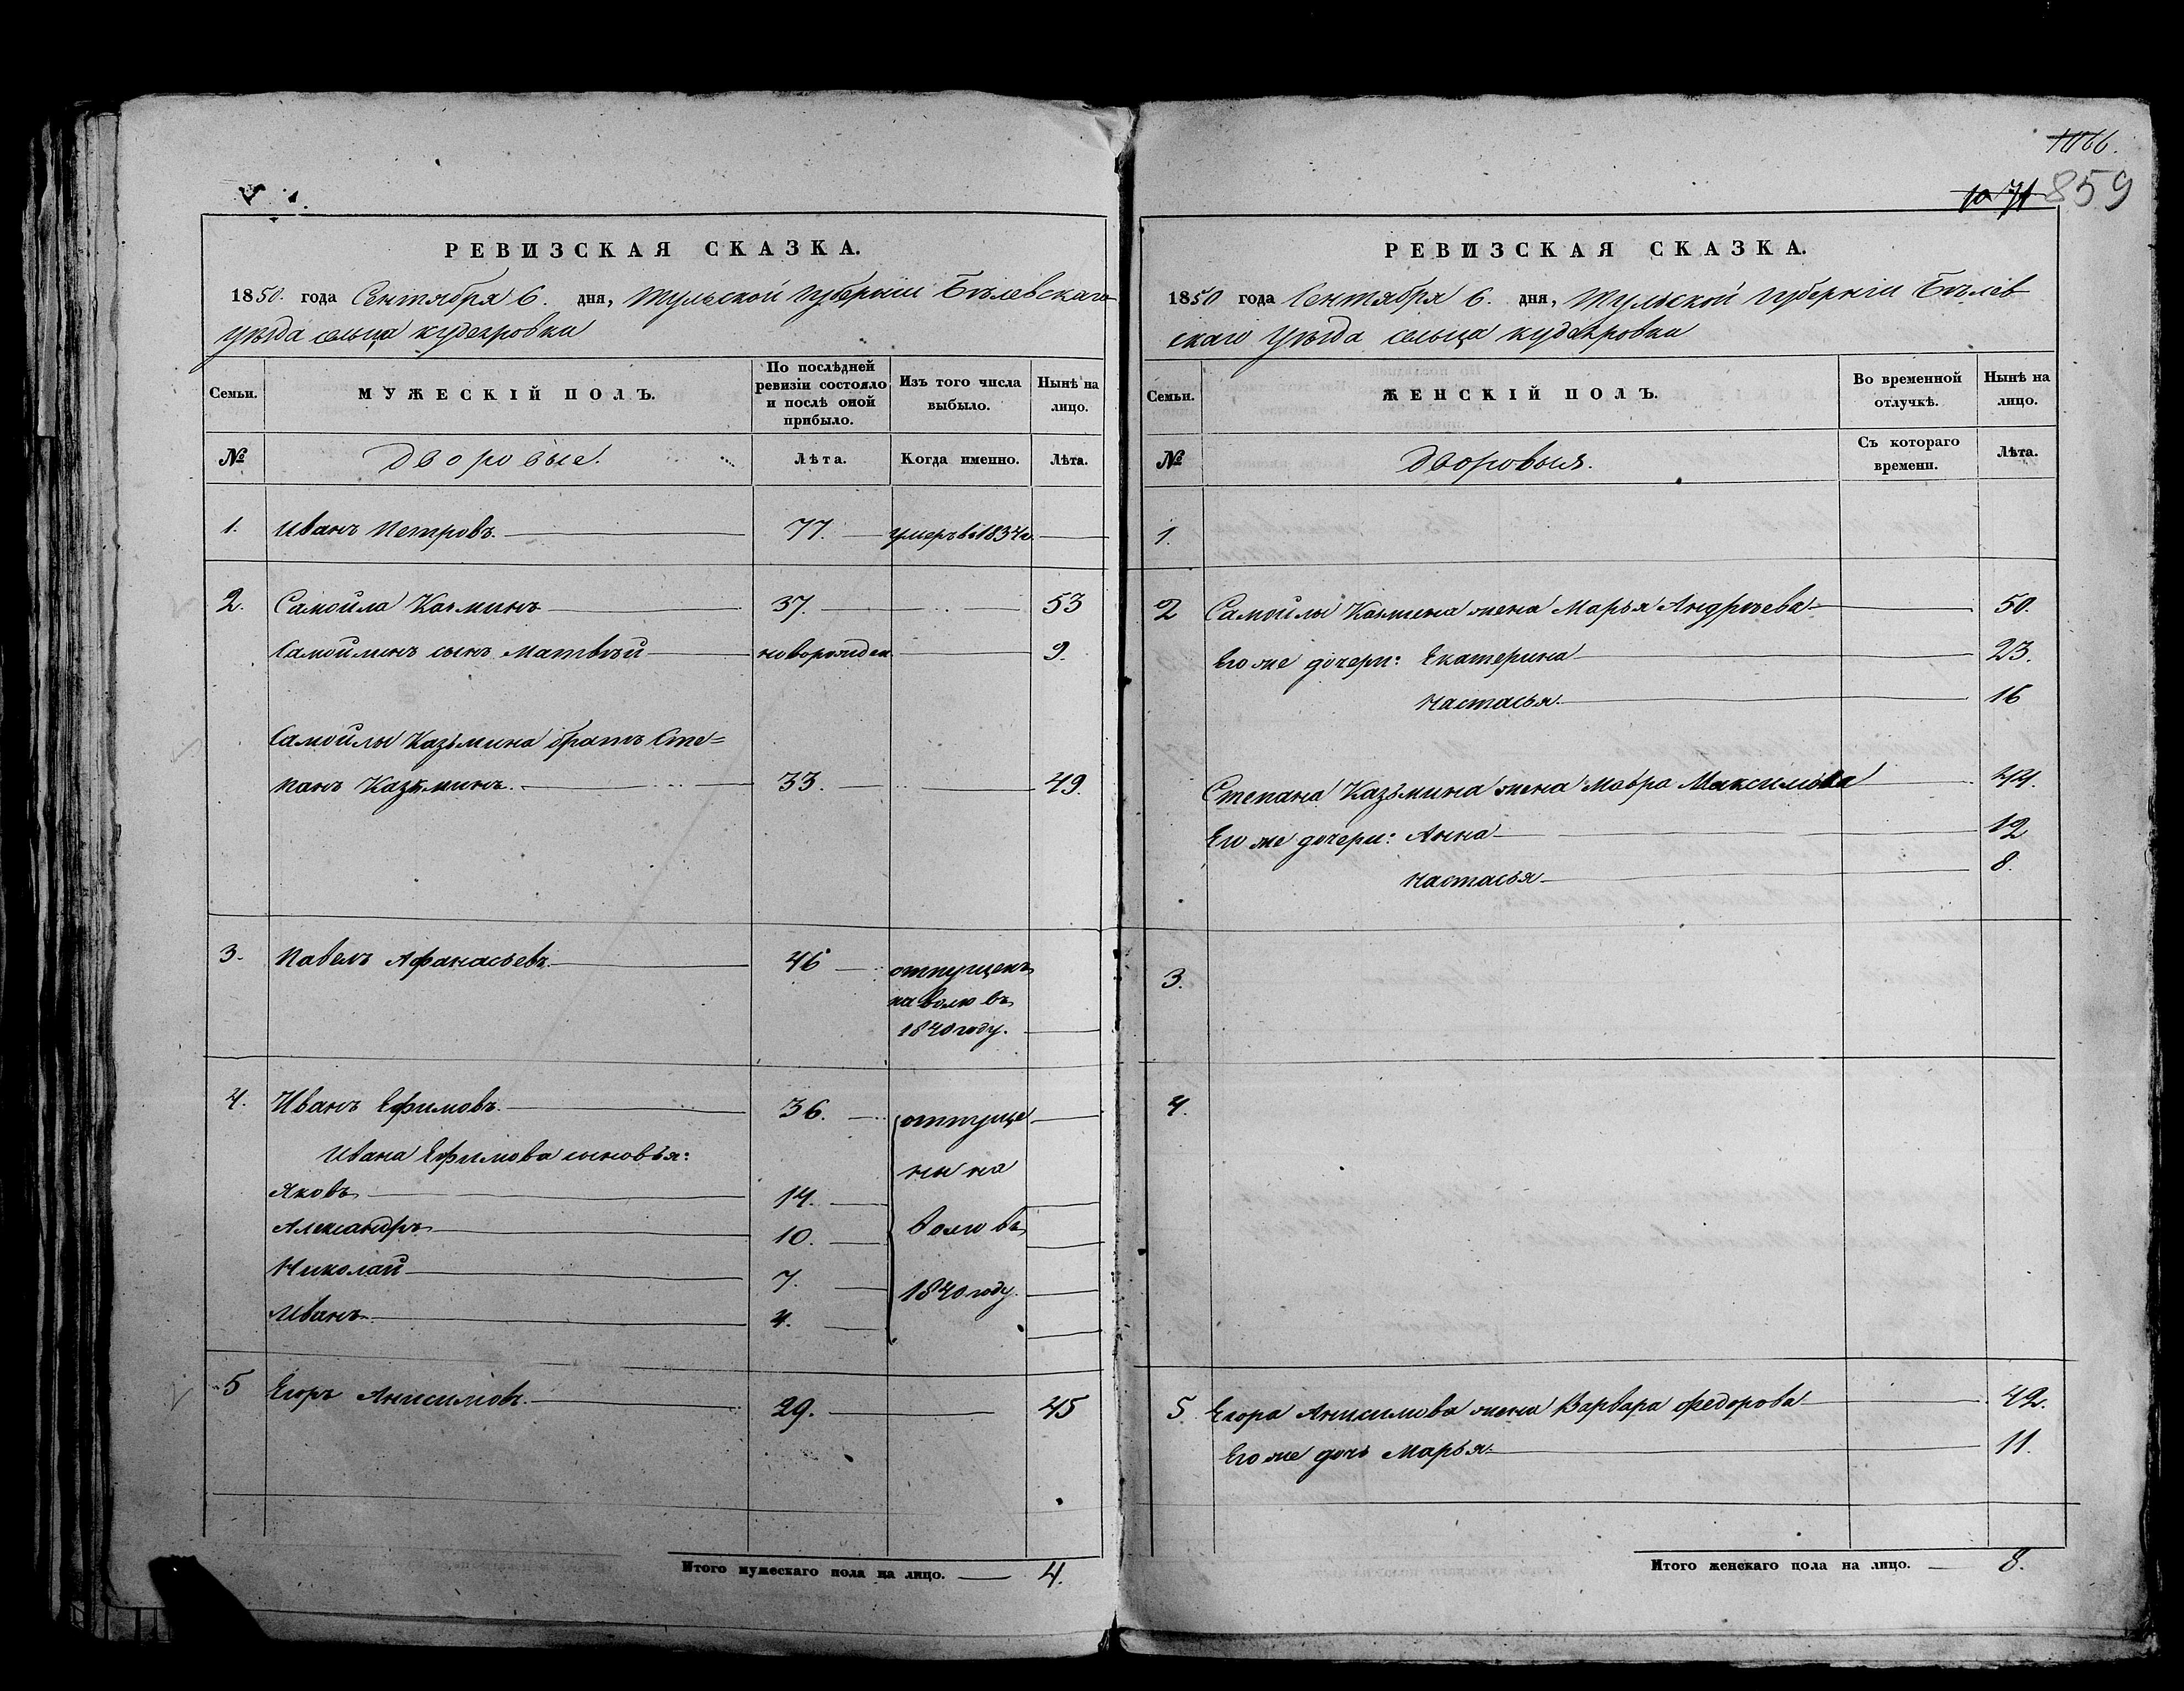 1066.
1071 859
РЕВИЗСКАЯ СКАЗКА.
1850. года Сентября 6. дня, Тульской губерніи Бѣлевскаго
уѣзда сельца кудеяровки
Семьи.
МУЖЕСКІЙ ПОЛЪ.
По послѣдней
ревизіи состояло
и послѣ оной
прибыло.
Изъ того числа
выбыло.
Нынѣ на
лицо.
№ Дворовые. Лѣта. Когда именно. Лѣта.
1. Иванъ Петровъ. 77. умеръ в 1834 г.
2. Самойла Казминъ 37. 53
Самойлинъ сынъ Матвѣй новорожден. 9.
Самойлы Казьмина братъ Сте=
панъ Казьминъ. 33. 49.
3. Павелъ Афанасьевъ. 46 отпущенъ
на волю въ
1840 году.
4. Иванъ Ефимовъ. 36. отпуще
Ивана Ефимова сыновья:
ны на
Яковъ 14.
Александръ 10. волю въ
Николай 7. 1840 году.
Иванъ 4.
5 Егоръ Анисимовъ. 29. 45
Итого мужескаго пола на лицо. 4.
РЕВИЗСКАЯ СКАЗКА.
1850 года Сентября 6. дня, Тульской губерніи Бѣлев
скаго уѣзда сельца кудеяровки
Семьи.
ЖЕНСКІЙ ПОЛЪ.
Во временной
отлучкѣ.
Нынѣ на
лицо.
№ Дворовыя.
Съ котораго
времени.
Лѣта.
1.
2 Самойлы Казмина жена Марья Андрѣева 50.
Его же дочери: Екатерина 23.
Настасья. 16
Степана Казьмина жена Мавра Максимова 44.
Его же дочери: Анна 12
Настасья 8.
3.
4.
5. Егора Анисимова жена Варвара Федорова 42.
Его же дочь Марья. 11.
Итого женскаго пола на лицо. 8.